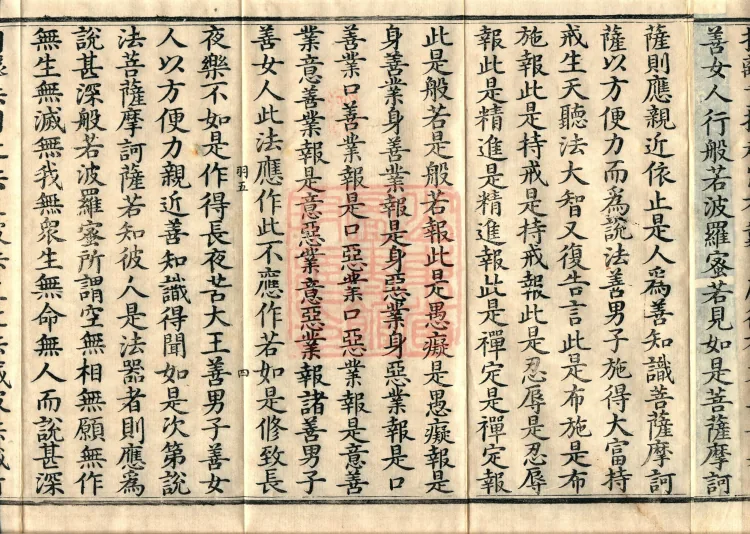 善女人行般若波羅蜜若見如是菩薩摩訶
薩則應親近依止是人爲善知識菩薩摩訶
薩以方便力而爲說法善男子施得大富持
戒生天聽法大智又復告言此是布施是布
施報此是持戒是持戒報此是忍辱是忍辱
報此是精進是精進報此是禪定是禪定報
此是般若是般若報此是愚癡是愚癡報是
身善業身善業報是身惡業身惡業報是口
善業口善業報是口惡業口惡業報是意善
業意善業報是意惡業意惡業報諸善男子
善女人此法應作此不應作若如是修致長
羽五
四
夜樂不如是作得長夜苦大王善男子善女
人以方便力親近善知識得聞如是次第說
法菩薩摩訶薩若知彼人是法器者則應爲
說甚深般若波羅蜜所謂空無相無願無作
無生無滅無我無衆生無命無人而說甚深